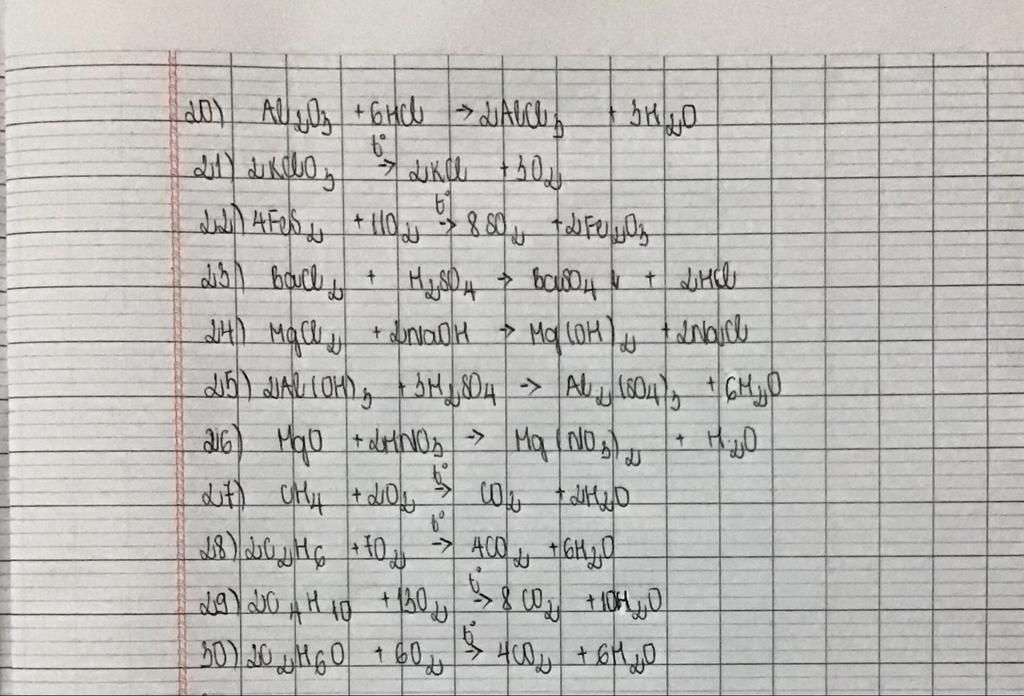 20) Al₂O₃ + 6HCl → 2AlCl₃ + 3H₂O
21) 2KClO₃ t°→ 2KCl + 3O₂
22) 4FeS₂ + 11O₂ t°→ 8SO₂ + 2Fe₂O₃
23) BaCl₂ + H₂SO₄ → BaSO₄ ↓ + 2HCl
24) MgCl₂ + 2NaOH → Mg(OH)₂ + 2NaCl
25) 2Al(OH)₃ + 3H₂SO₄ → Al₂(SO₄)₃ + 6H₂O
26) MgO + 2HNO₃ → Mg(NO₃)₂ + H₂O
27) CH₄ + 2O₂ t°→ CO₂ + 2H₂O
28) 2C₂H₆ + 7O₂ t°→ 4CO₂ + 6H₂O
29) 2C₄H₁₀ + 13O₂ t°→ 8CO₂ + 10H₂O
30) 2C₂H6O + 6O₂ t°→ 4CO₂ + 6H₂O